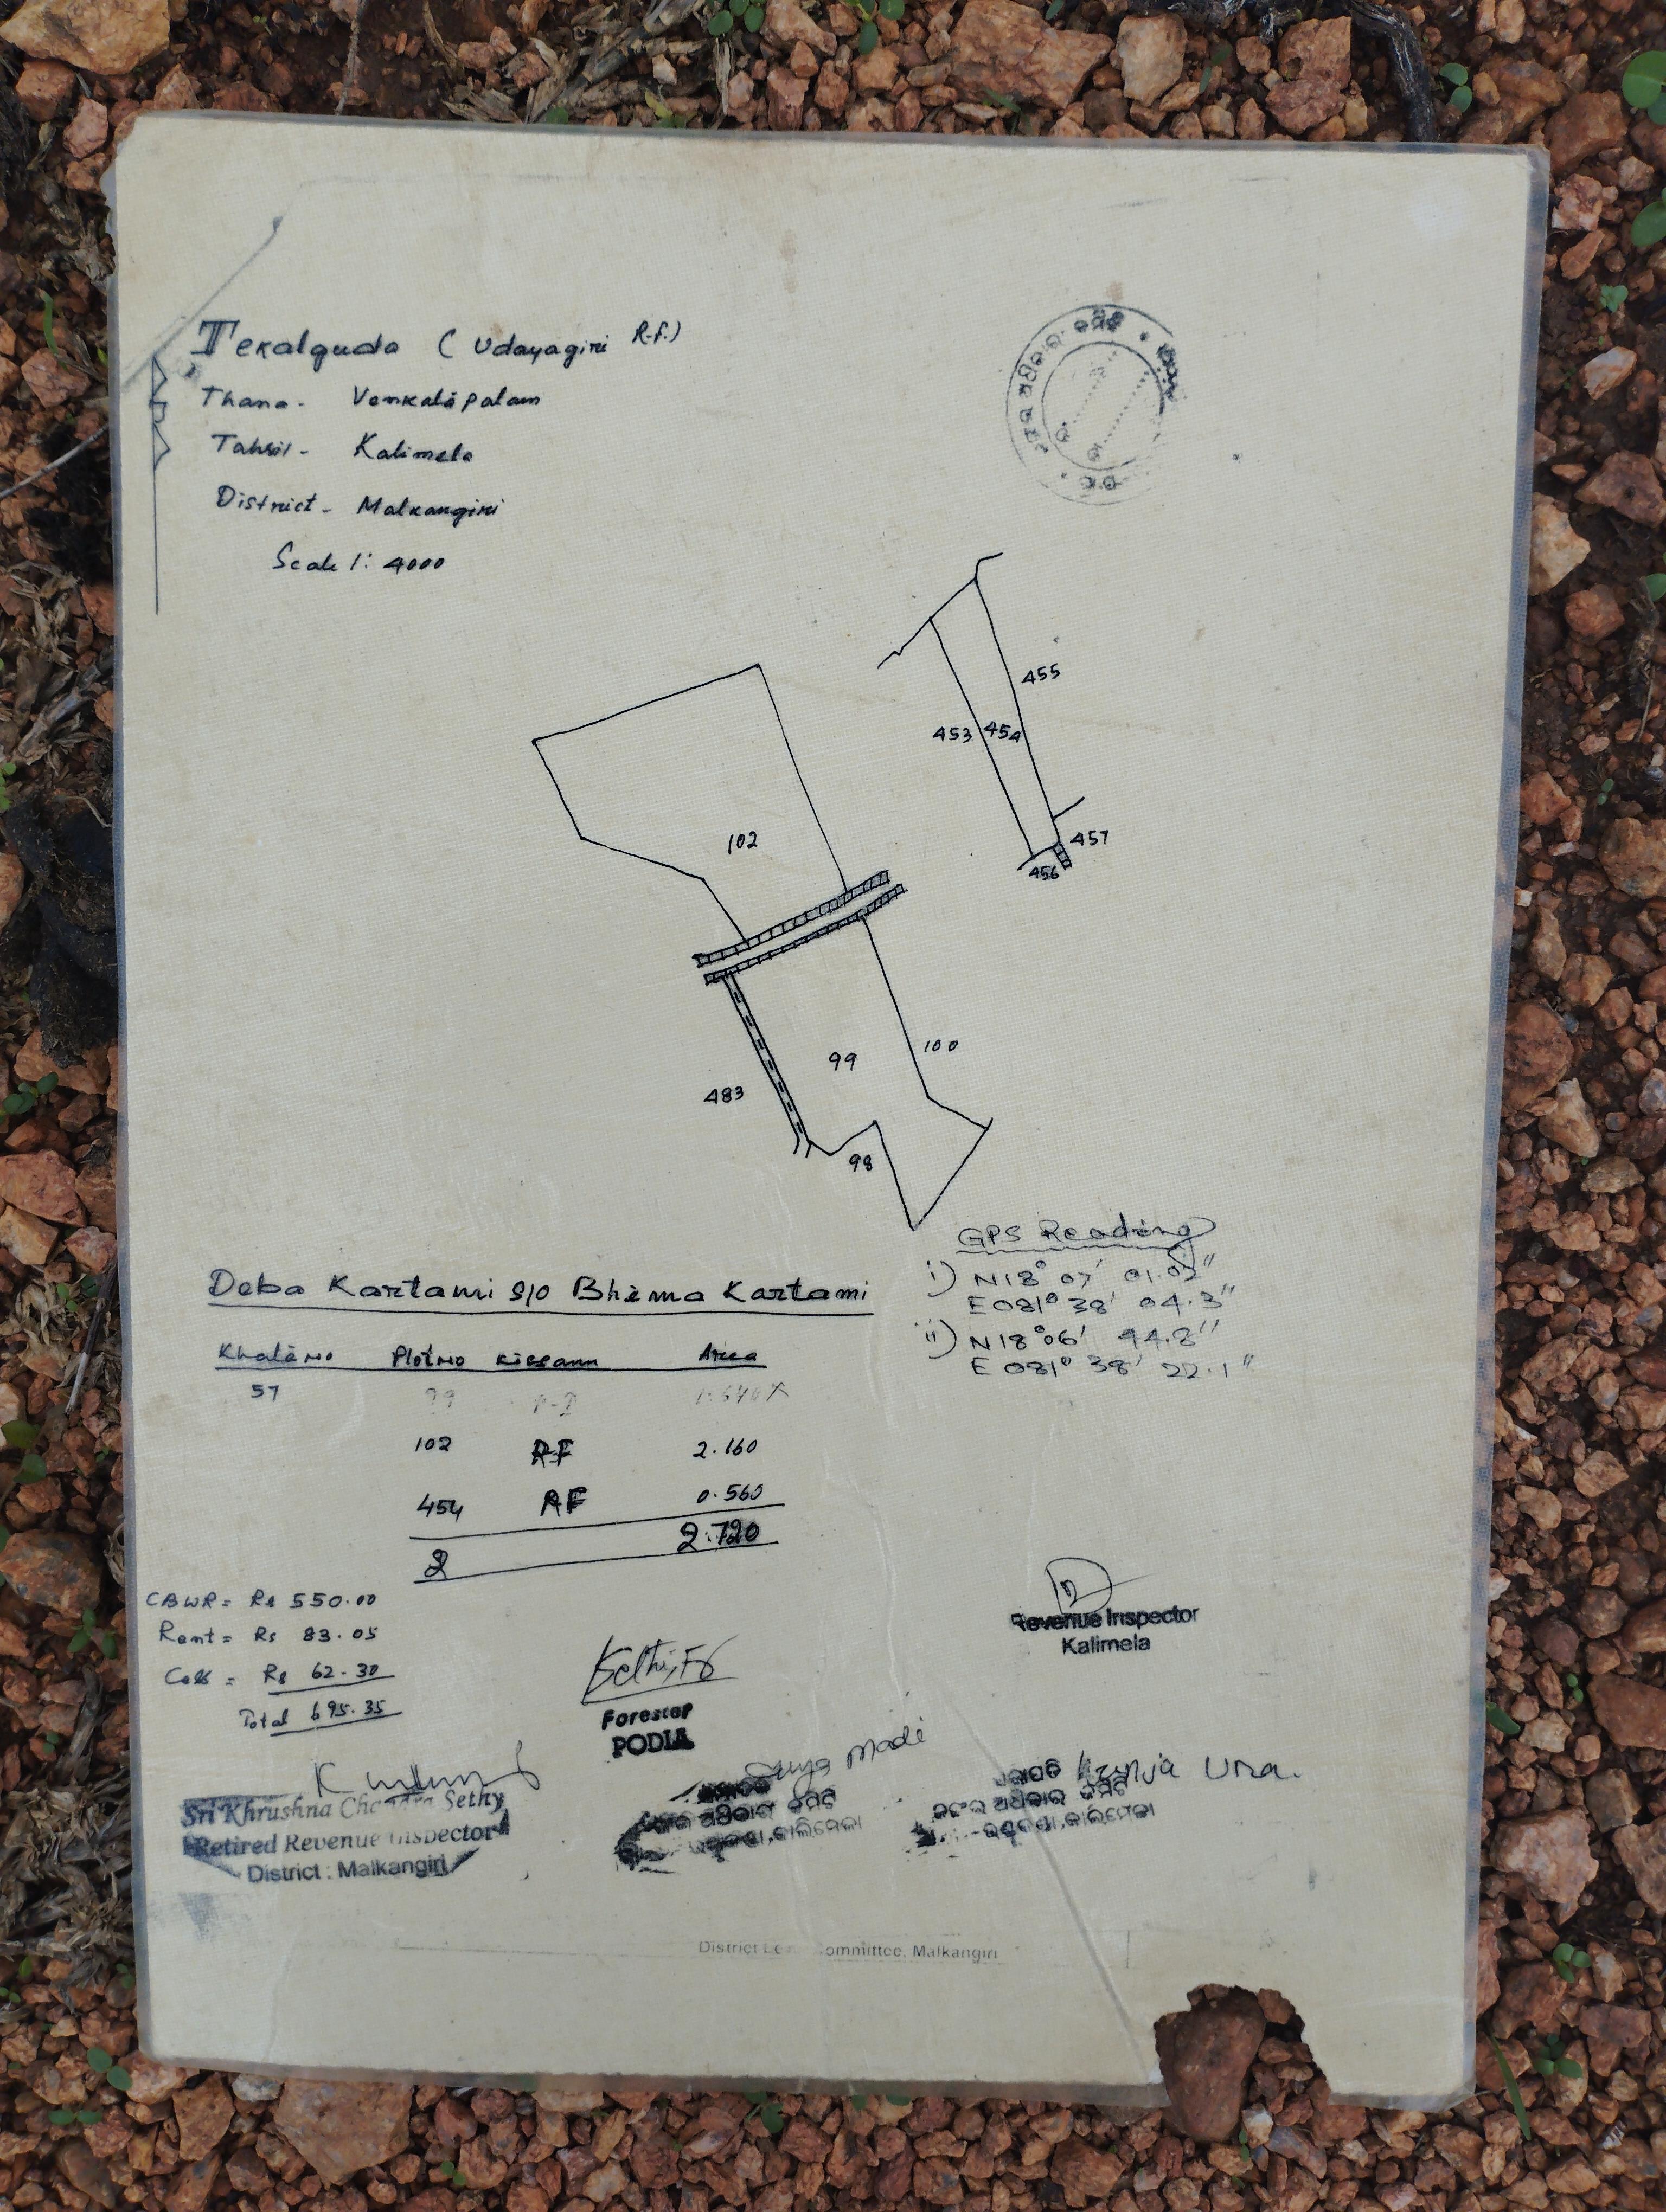 Tekalguda (Udayagiri R.f.)
Thana - Venkatapalam
Tahsil - Kalimela
District - Malkangiri
Scale 1: 4000
455
453 454
102
457
456
99
100
483
98
GPS Reading
i) N18° 07' 01.02"
E 081° 38' 04.3"
ii) N18° 06' 44.8"
E 081° 38' 22.1"
Deba Kartami S/O Bhima Kartami
Khata No Plot No Kissam Area
57 99
102 RF 2.160
454 RF 0.560
2 2.720
CBWR = Rs 550.00
Rent = Rs 83.05
Cess = Rs 62.30
Total 695.35
Revenue Inspector
Kalimela
Forester
PODIA
Madi
Sri Khrushna Chandra Sethy
Retired Revenue Inspector
District : Malkangiri
ଜଙ୍ଗଲ ଅଧିକାର କମିଟି
District Committee, Malkangiri